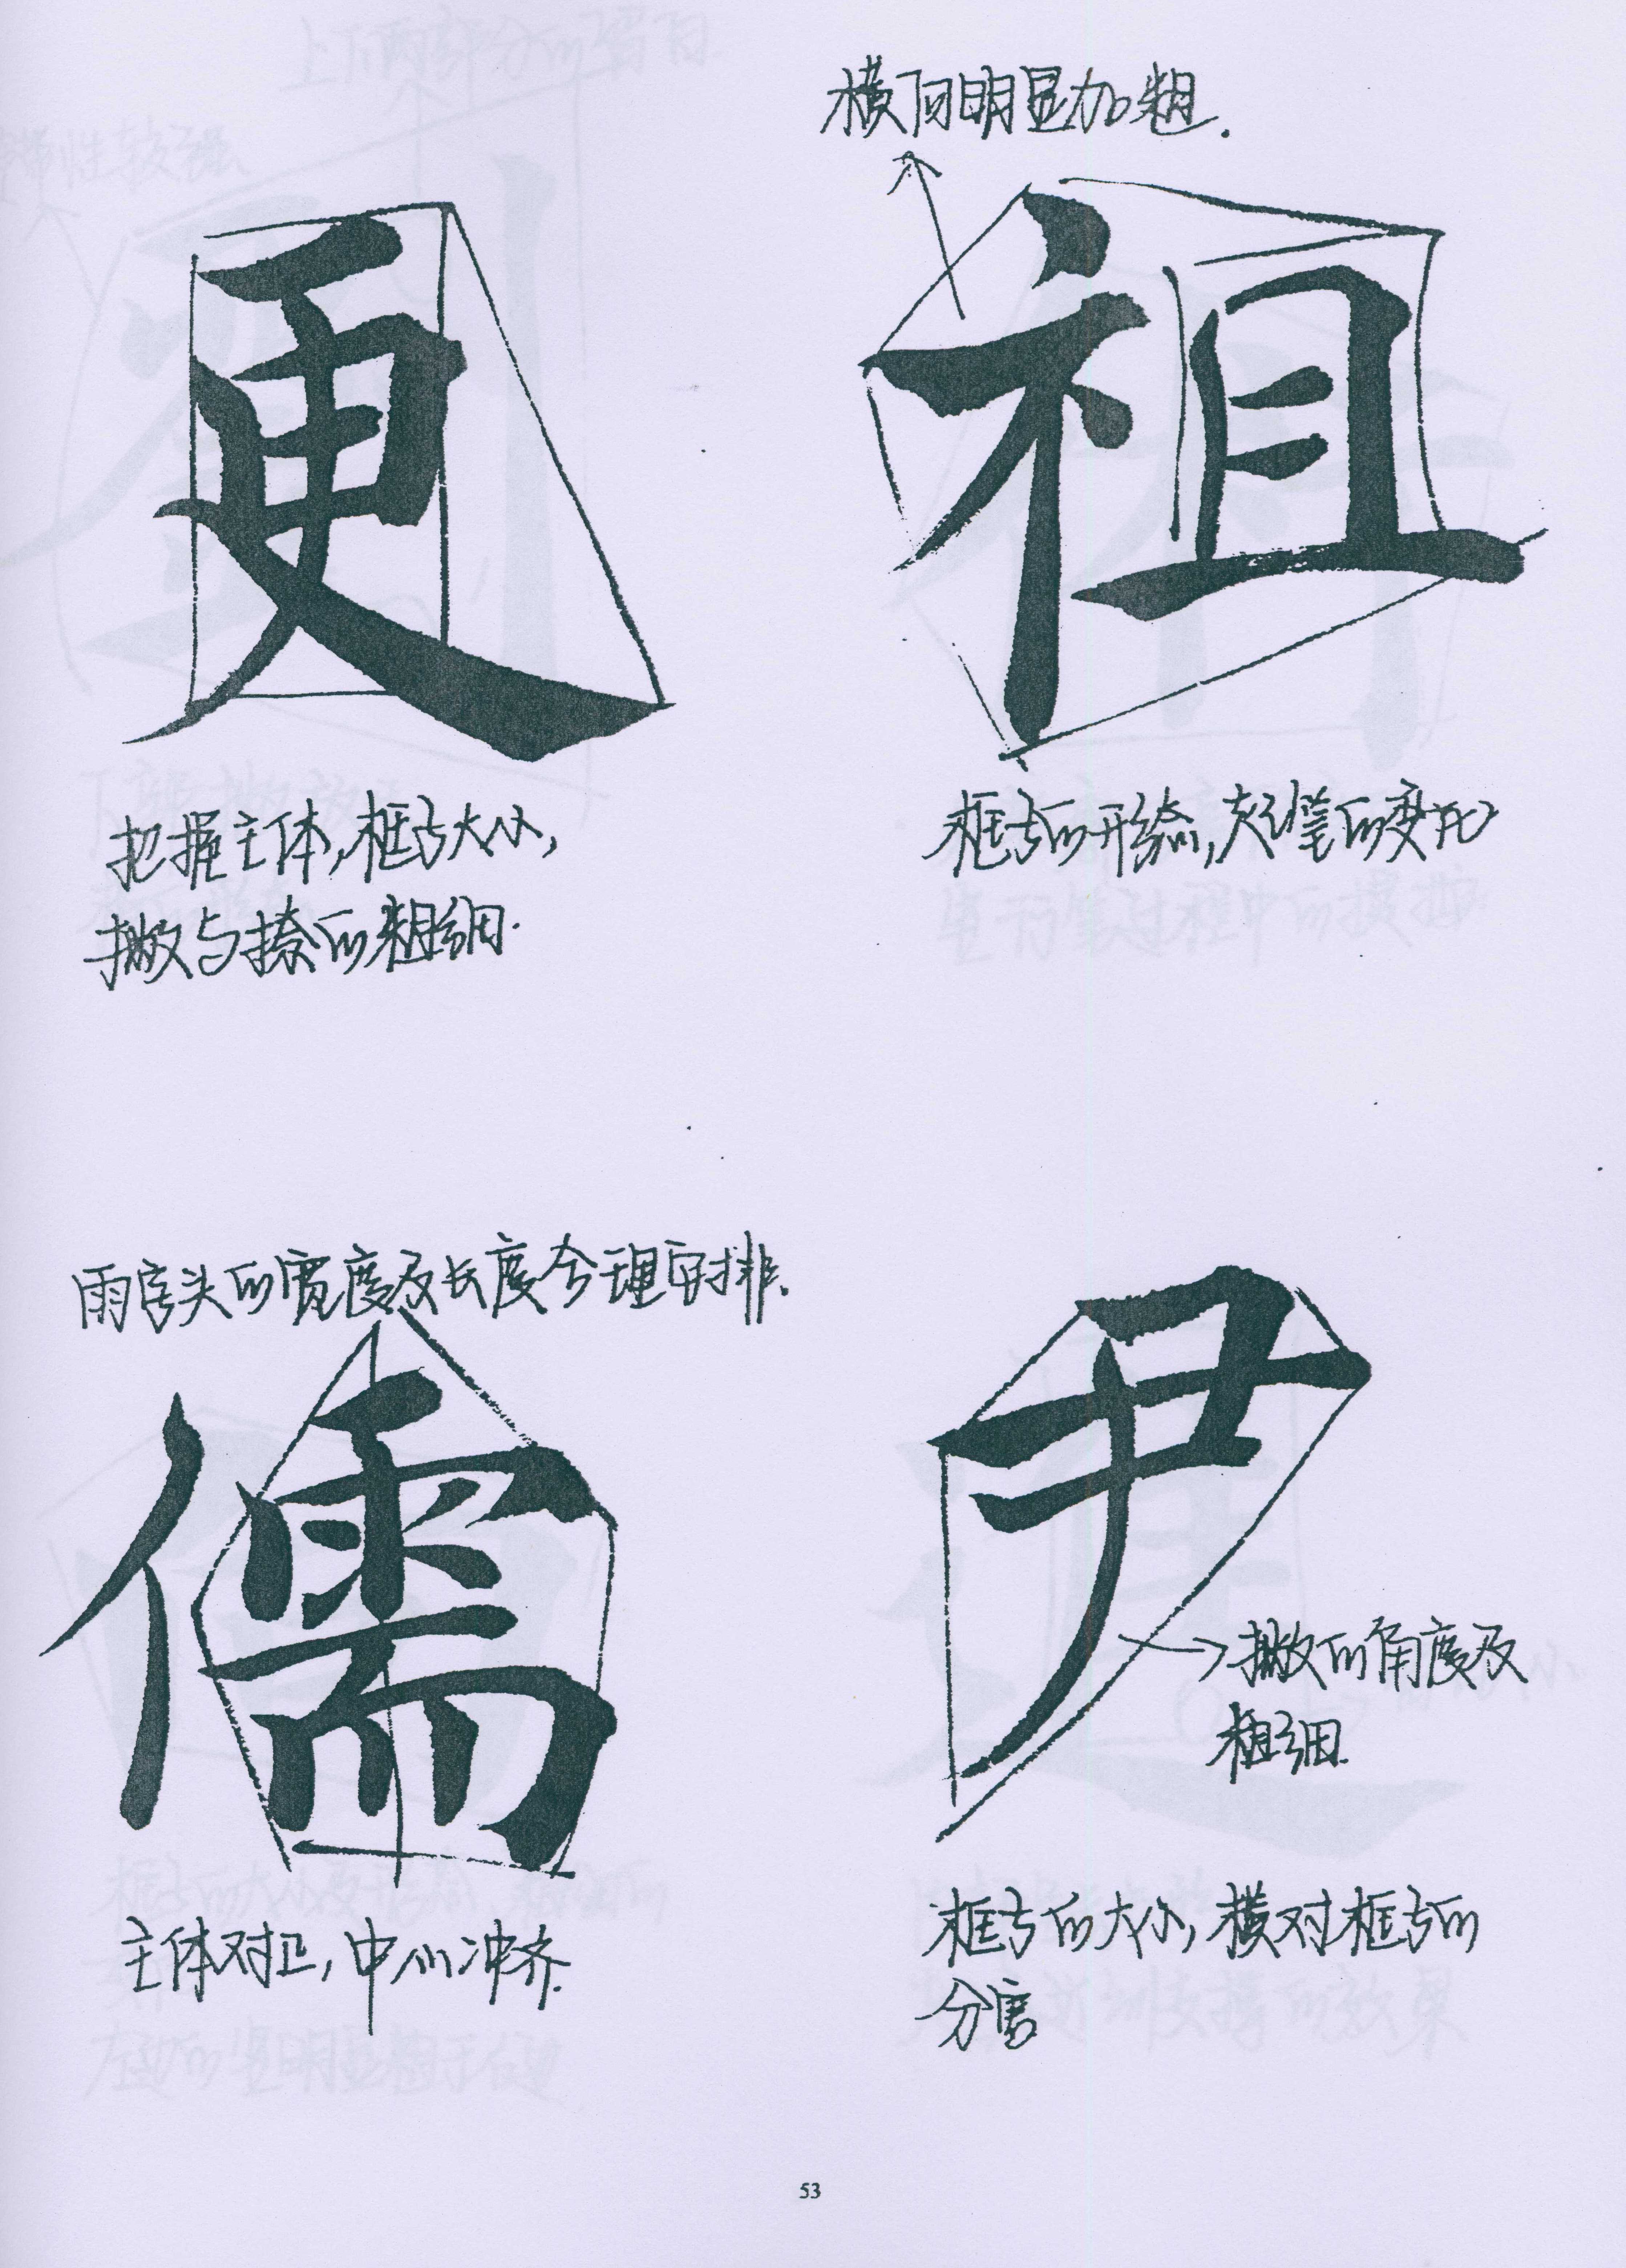 横向明显加粗.
更
祖
把握主体,框与大小,
撇与捺的粗细.
框与的形态,起笔的变化
雨字头的宽度及长度合理安排.
儒
尹
撇的角度及
粗细.
主体对正,中心冲齐.
框与的大小,横对框与的
分割
53